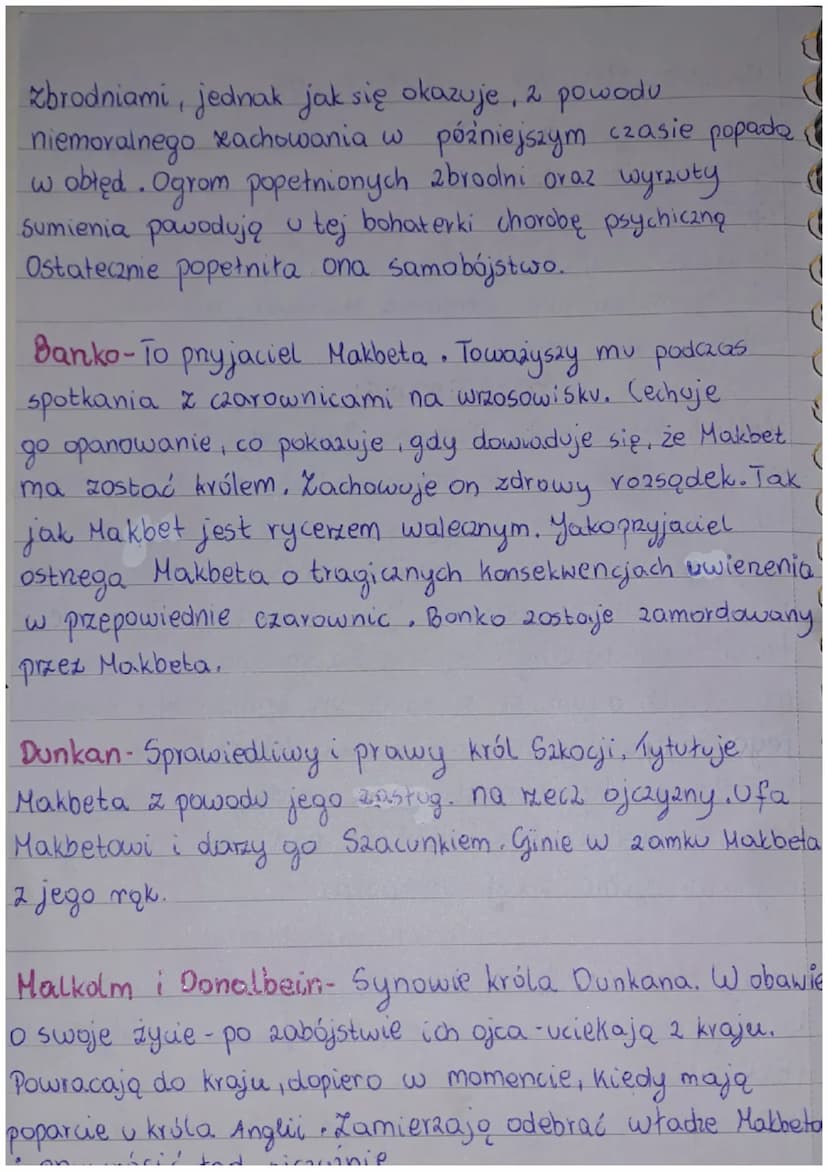 zbrodniami, jednak jak się okazuje, z powodu
niemoralnego zachowania w późniejszym czasie popada
w obłęd. Ogrom popełnionych zbrodni oraz wyrzuty
sumienia powodują u tej bohaterki chorobę psychiczną
Ostatecznie popełniła ona samobójstwo.
Banko - To pryjaciel Makbeta. Toważyszy mu podczas
spotkania z czarownicami na wrzosowisku. Cechuje
go opanowanie, co pokazuje, gdy dowiaduje się, że Makbet
ma zostać królem. Zachowuje on zdrowy rozsądek. Tak
jak Makbet jest rycerzem walecznym. Jako przyjaciel
ostrzega Makbeta o tragicznych konsekwencjach uwierzenia
w przepowiednie czarownic. Banko zostaje zamordowany
przez Makbeta.
Dunkan - Sprawiedliwy i prawy król Szkocji. Tytułuje
Makbeta z powodu jego zasług. na rzecz ojczyzny. Ufa
Makbetowi i darzy go Szacunkiem. Ginie w zamku Makbeta
z jego rąk.
Malkolm i Donalbein - Synowie króla Dunkana. W obawie
o swoje życie - po zabójstwie ich ojca - uciekają z kraju.
Powracają do kraju, dopiero w momencie, kiedy mają
poparcie u króla Anglii. Zamierzają odebrać władze Makbeta